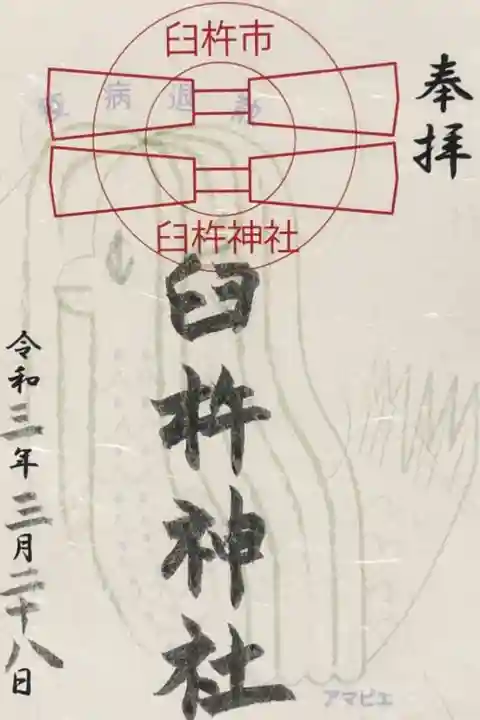 奉拝
臼杵市
疫病退散
臼杵神社
臼杵神社
令和三年三月二十八日
アマビエ